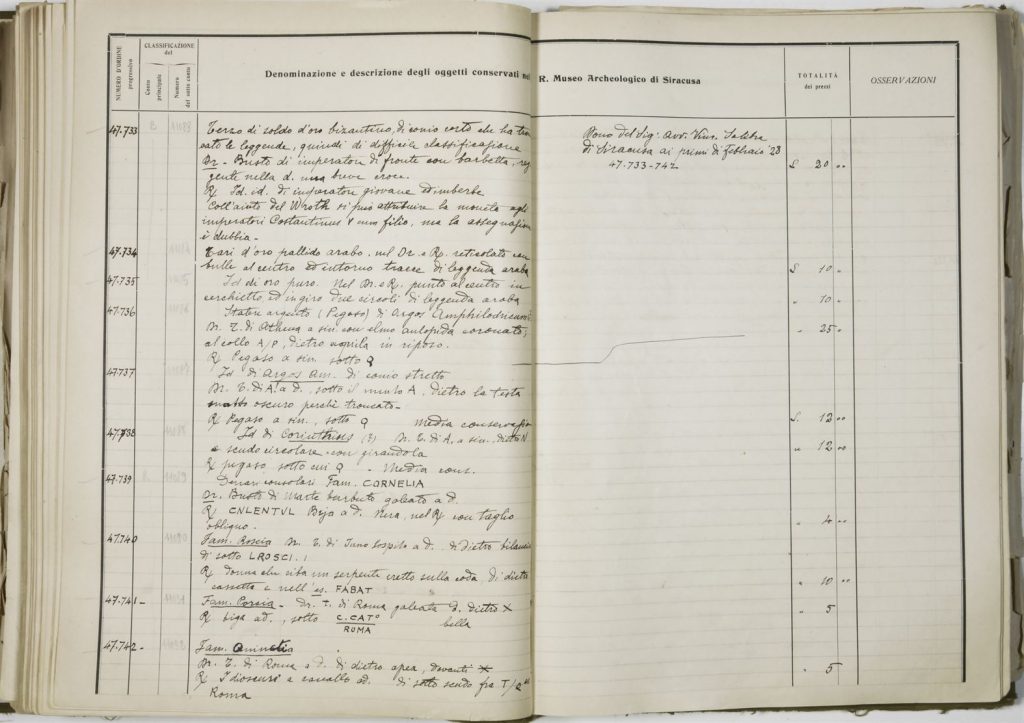 NUMERO D'ORDINE progressivo
CLASSIFICAZIONE del
Conto principale
Numero del sotto conto
Denominazione e descrizione degli oggetti conservati nel R. Museo Archeologico di Siracusa
TOTALITÀ dei prezzi
OSSERVAZIONI
47.733 B Terzo di soldo d'oro bizantino, di conio corto che ha tron
cato le leggende, quindi di difficile classificazione
Dr. - Busto di imperatore di fronte con barbetta, reg
gente nella d. una breve croce.
R/ Id. id. di imperatore giovane ed imberbe
Coll'aiuto del Wroth si può attribuire la moneta agli
imperatori Costantinus V e suo filio, ma la assegnazione
è dubbia -
Dono del Sig. Avv. Vinc.
di Siracusa ai primi di Febbraio 23
47.733-742
£ 20 "
47.734 Tarì d'oro pallido arabo, nel Dr. e R/. reticolato con
bulle al centro ed intorno tracce di leggenda araba
£ 10 "
47.735 Id di oro puro. Nel Dr. e R/. punto al centro in
cerchietto, ed in giro due circoli di leggenda araba
" 10 "
47.736 Statere argento (Pegaso) di Argos Amphilochicum
Dr. T. di Athena a sin. con elmo aulopida coronato,
al collo A/P, dietro aquila in riposo.
R/ Pegaso a sin. sotto Ϙ
" 25 "
47.737 Id di Argos Am. di conio stretto
Dr. T. di A. a d., sotto il mento A. dietro la testa
oscuro perchè troncato -
R/ Pegaso a sin., sotto Ϙ media conservazion
£. 12 "
47.738 Id di Corinthus (?) Dr. T. di A. a sin. dietro N
e scudo circolare con girandola
R/ pegaso sotto cui Ϙ - Media cons.
" 12 "
47.739 B. 11089 Denari consolari Fam. CORNELIA
Dr. Busto di Marte barbuto galeato a d.
R/ CNLENTVL Biga a d. nel R/ con taglio
obliquo.
" 4 "
47.740 11090 Fam. Roscia Dr. T. di Iuno Sospita a d. di dietro bilancia
di sotto LROSCI
R/ Donna che ciba un serpente eretto sulla coda, di dietro
cassetta e nell'es. FABAT
" 10 "
47.741 - Fam. Porcia - Dr. T. di Roma galeata d. dietro X
R/ biga a d., sotto C.CATO bella
ROMA
" 5
47.742 - Fam.
Dr. T. di Roma a d. di dietro apex, davanti X
R/ I dioscuri a cavallo a d. di sotto scudo fra T/Q
Roma
" 5